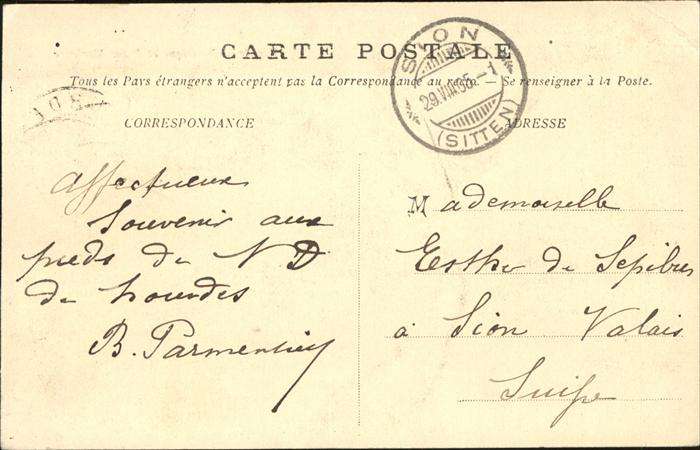 CARTE POSTALE
Tous les Pays étrangers n'acceptent pas la Correspondance au recto. — Se renseigner à la Poste.
CORRESPONDANCE
Affectueux
Souvenir aux
pieds de N D
de Lourdes
B. Parmentier
SION
29.VIII.05.-7
(SITTEN)
ADRESSE
Mademoiselle
Esther de Sepibus
à Sion Valais
Suisse